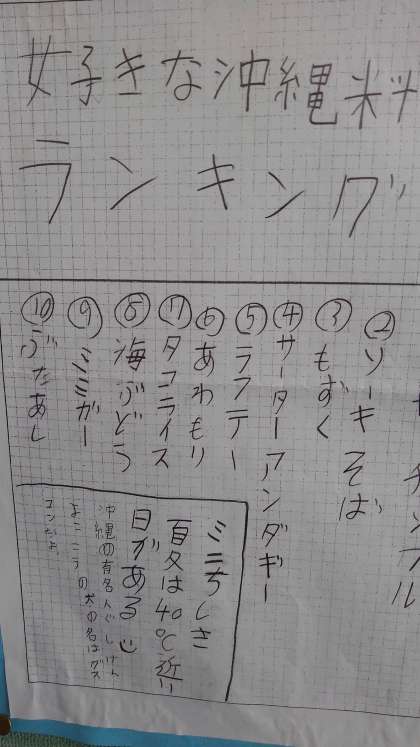 好きな沖縄料
ランキング
②ソーキそば
③もずく
④サーターアンダギー
⑤ラフテー
⑥あわもり
⑦タコライス
⑧海ぶどう
⑨ミミガー
⑩ぶたあし
ミニちしき
夏は40℃近い
日がある
沖縄の有名人ぐしけん
ようこうの犬の名はグス
マンだよ。